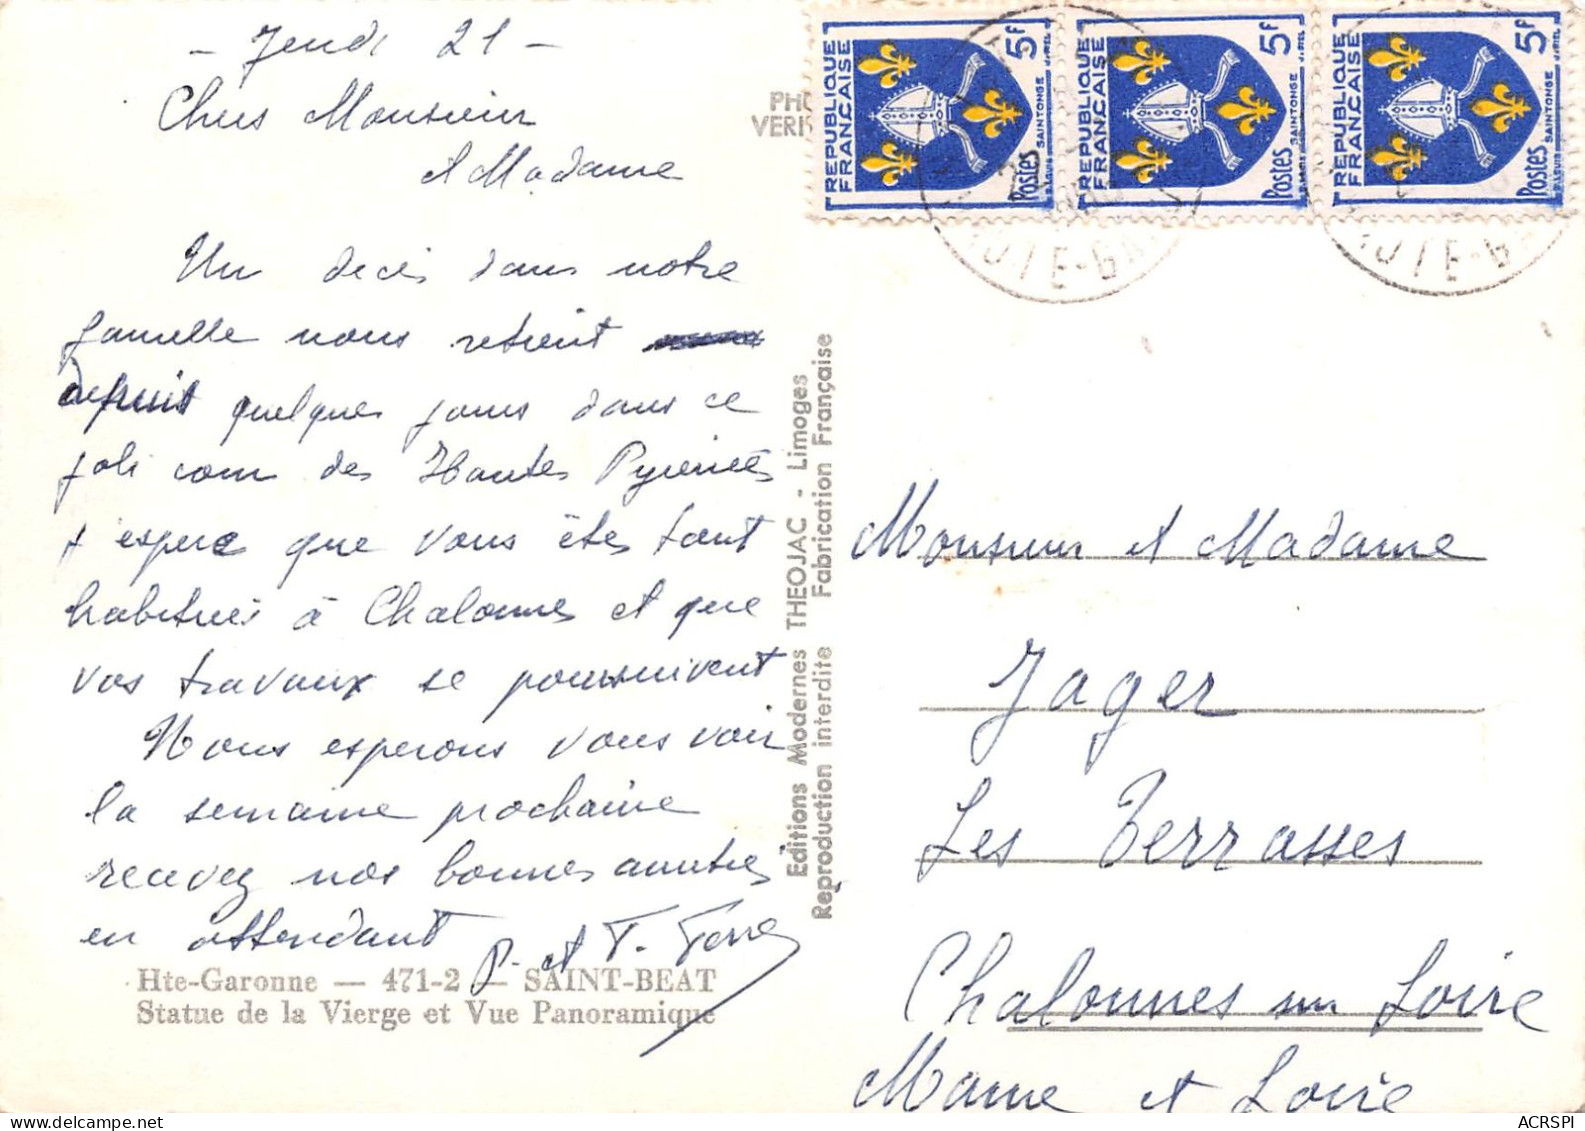 - Jeudi 21 -
Chers Monsieur
et Madame
Un décès dans notre
famille nous retient
depuis quelques jours dans ce
joli coin des Hautes Pyrénées
J'espere que vous êtes tout
habitués à Chalonnes et que
vos travaux se poursuivent
Nous esperons vous voir
la semaine prochaine
recevez nos bonnes amitiés
en attendant P. et T.
Hte-Garonne — 471-2 — SAINT-BEAT
Statue de la Vierge et Vue Panoramique
Editions Modernes THEOJAC - Limoges
Reproduction interdite Fabrication Française
PHO
VERI
REPUBLIQUE FRANÇAISE 5F Postes SAINTONGE
REPUBLIQUE FRANÇAISE 5F Postes SAINTONGE
REPUBLIQUE FRANÇAISE 5F Postes SAINTONGE
Monsieur et Madame
Jager
Les Terrasses
Chalonnes sur Loire
Maine et Loire
ACRSPI